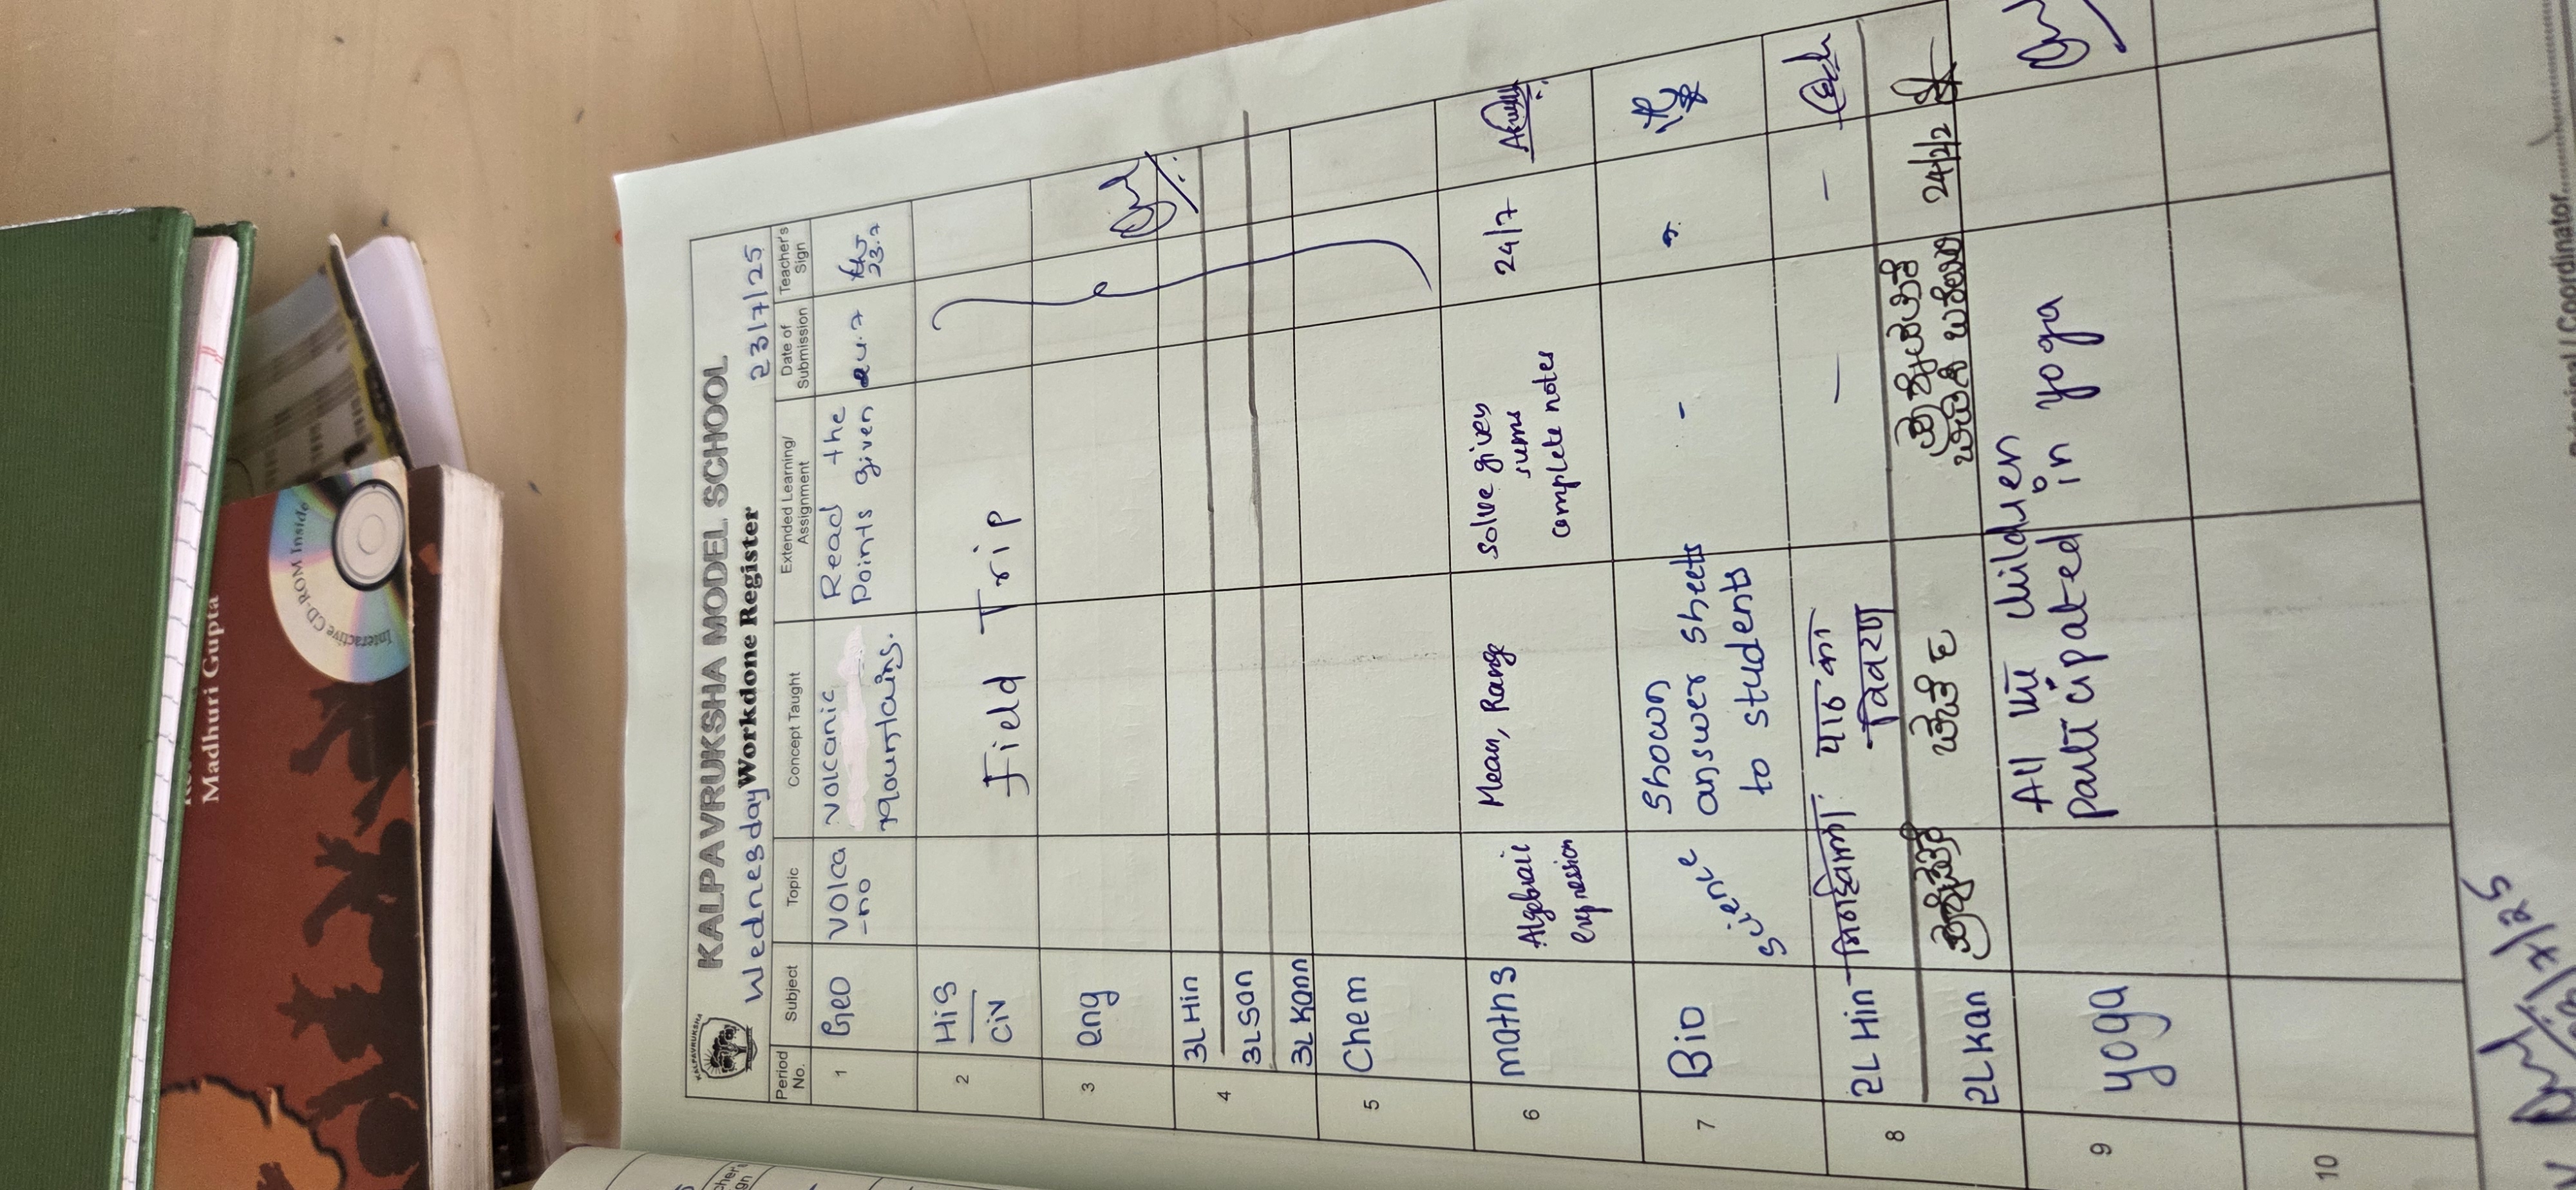 Madhuri Gupta
Interactive CD-ROM Inside
KALPAVRUKSHA
KALPAVRUKSHA MODEL SCHOOL
Wednesday Workdone Register 23/7/25
Period No. Subject Topic Concept Taught Extended Learning/ Assignment Date of Submission Teacher's Sign
1 Geo Volca
-no
volcanic
mountains.
Read the
Points given
24.7
23.7
2 His
Civ
Field Trip
3 eng
4 3L Hin
3L San
3L Kann
5 Chem
6 maths Algebraic
expression
Mean, Range
Solve given
sums
complete notes
24/7
7 Bio Science
Shown
answer sheets
to students
-
8 2L Hin
पाठ का
विवरण
— –
2L Kan
24/7
9 yoga
All the children
participated in yoga
10
Principal / Coordinator